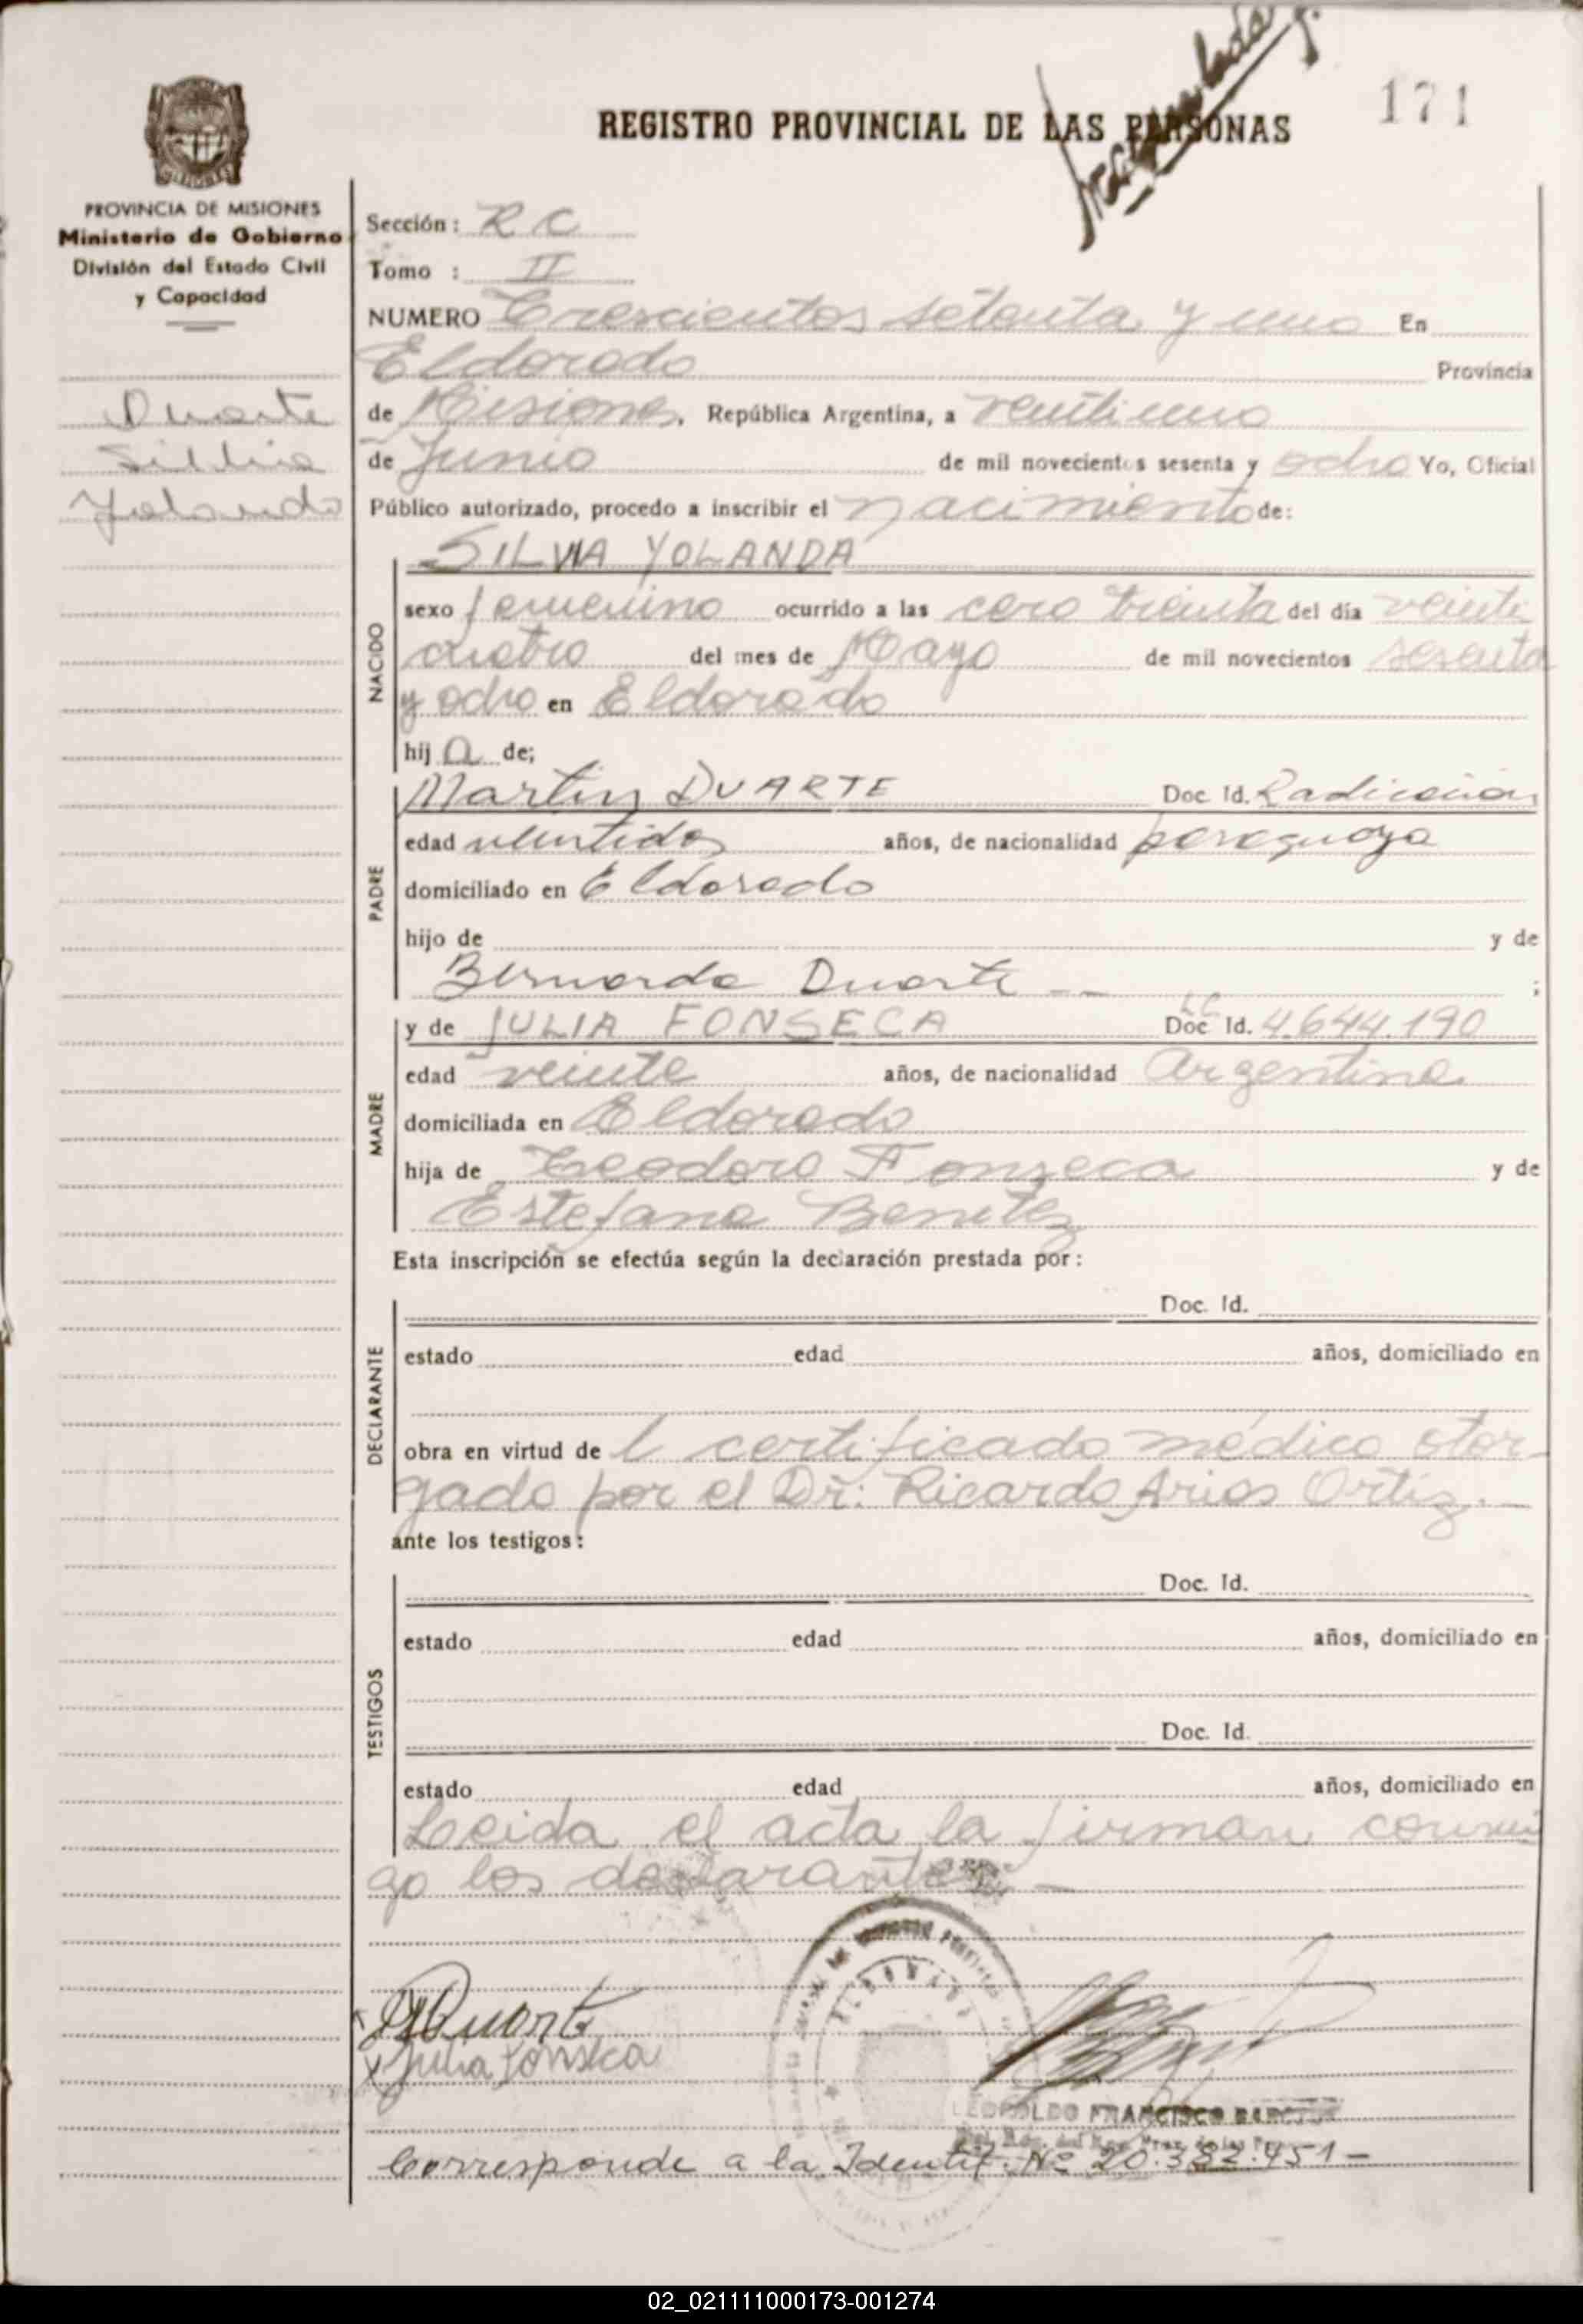 171
REGISTRO PROVINCIAL DE LAS PERSONAS
PROVINCIA DE MISIONES
Ministerio de Gobierno
División del Estado Civil
y Capacidad
Duarte
Silvia
Yolanda
Sección: R C
Tomo : II
NUMERO Trescientos setenta y uno En
Eldorado Provincia
de Misiones, República Argentina, a veintiuno
de Junio de mil novecientos sesenta y ocho Yo, Oficial
Público autorizado, procedo a inscribir el nacimiento de:
SILVIA YOLANDA
NACIDO
sexo femenino ocurrido a las cero treinta del día veinti
cuatro del mes de Mayo de mil novecientos sesenta
y ocho en Eldorado
hij a de;
PADRE
Martin DUARTE Doc Id. Radicación
edad veintidos años, de nacionalidad paraguaya
domiciliado en Eldorado
hijo de y de
Bernarda Duarte -- ;
MADRE
y de JULIA FONSECA Doc Id. LC 4.644.190
edad veinte años, de nacionalidad Argentina
domiciliada en Eldorado
hija de Teodoro Fonseca y de
Estefana Benitez
Esta inscripción se efectúa según la declaración prestada por:
DECLARANTE
Doc. Id.
estado edad años, domiciliado en
obra en virtud de l certificado médico otor
gado por el Dr: Ricardo Arias Ortiz.-
ante los testigos:
TESTIGOS
Doc. Id.
estado edad años, domiciliado en
Doc. Id.
estado edad años, domiciliado en
Leida el acta la firman conmi
go los declarantes.-
Duarte
x Julia Fonseca
ELDORADO
LEOPOLDO FRANCISCO
Corresponde a la Identif. Nº 20.382.451-
02_021111000173-001274